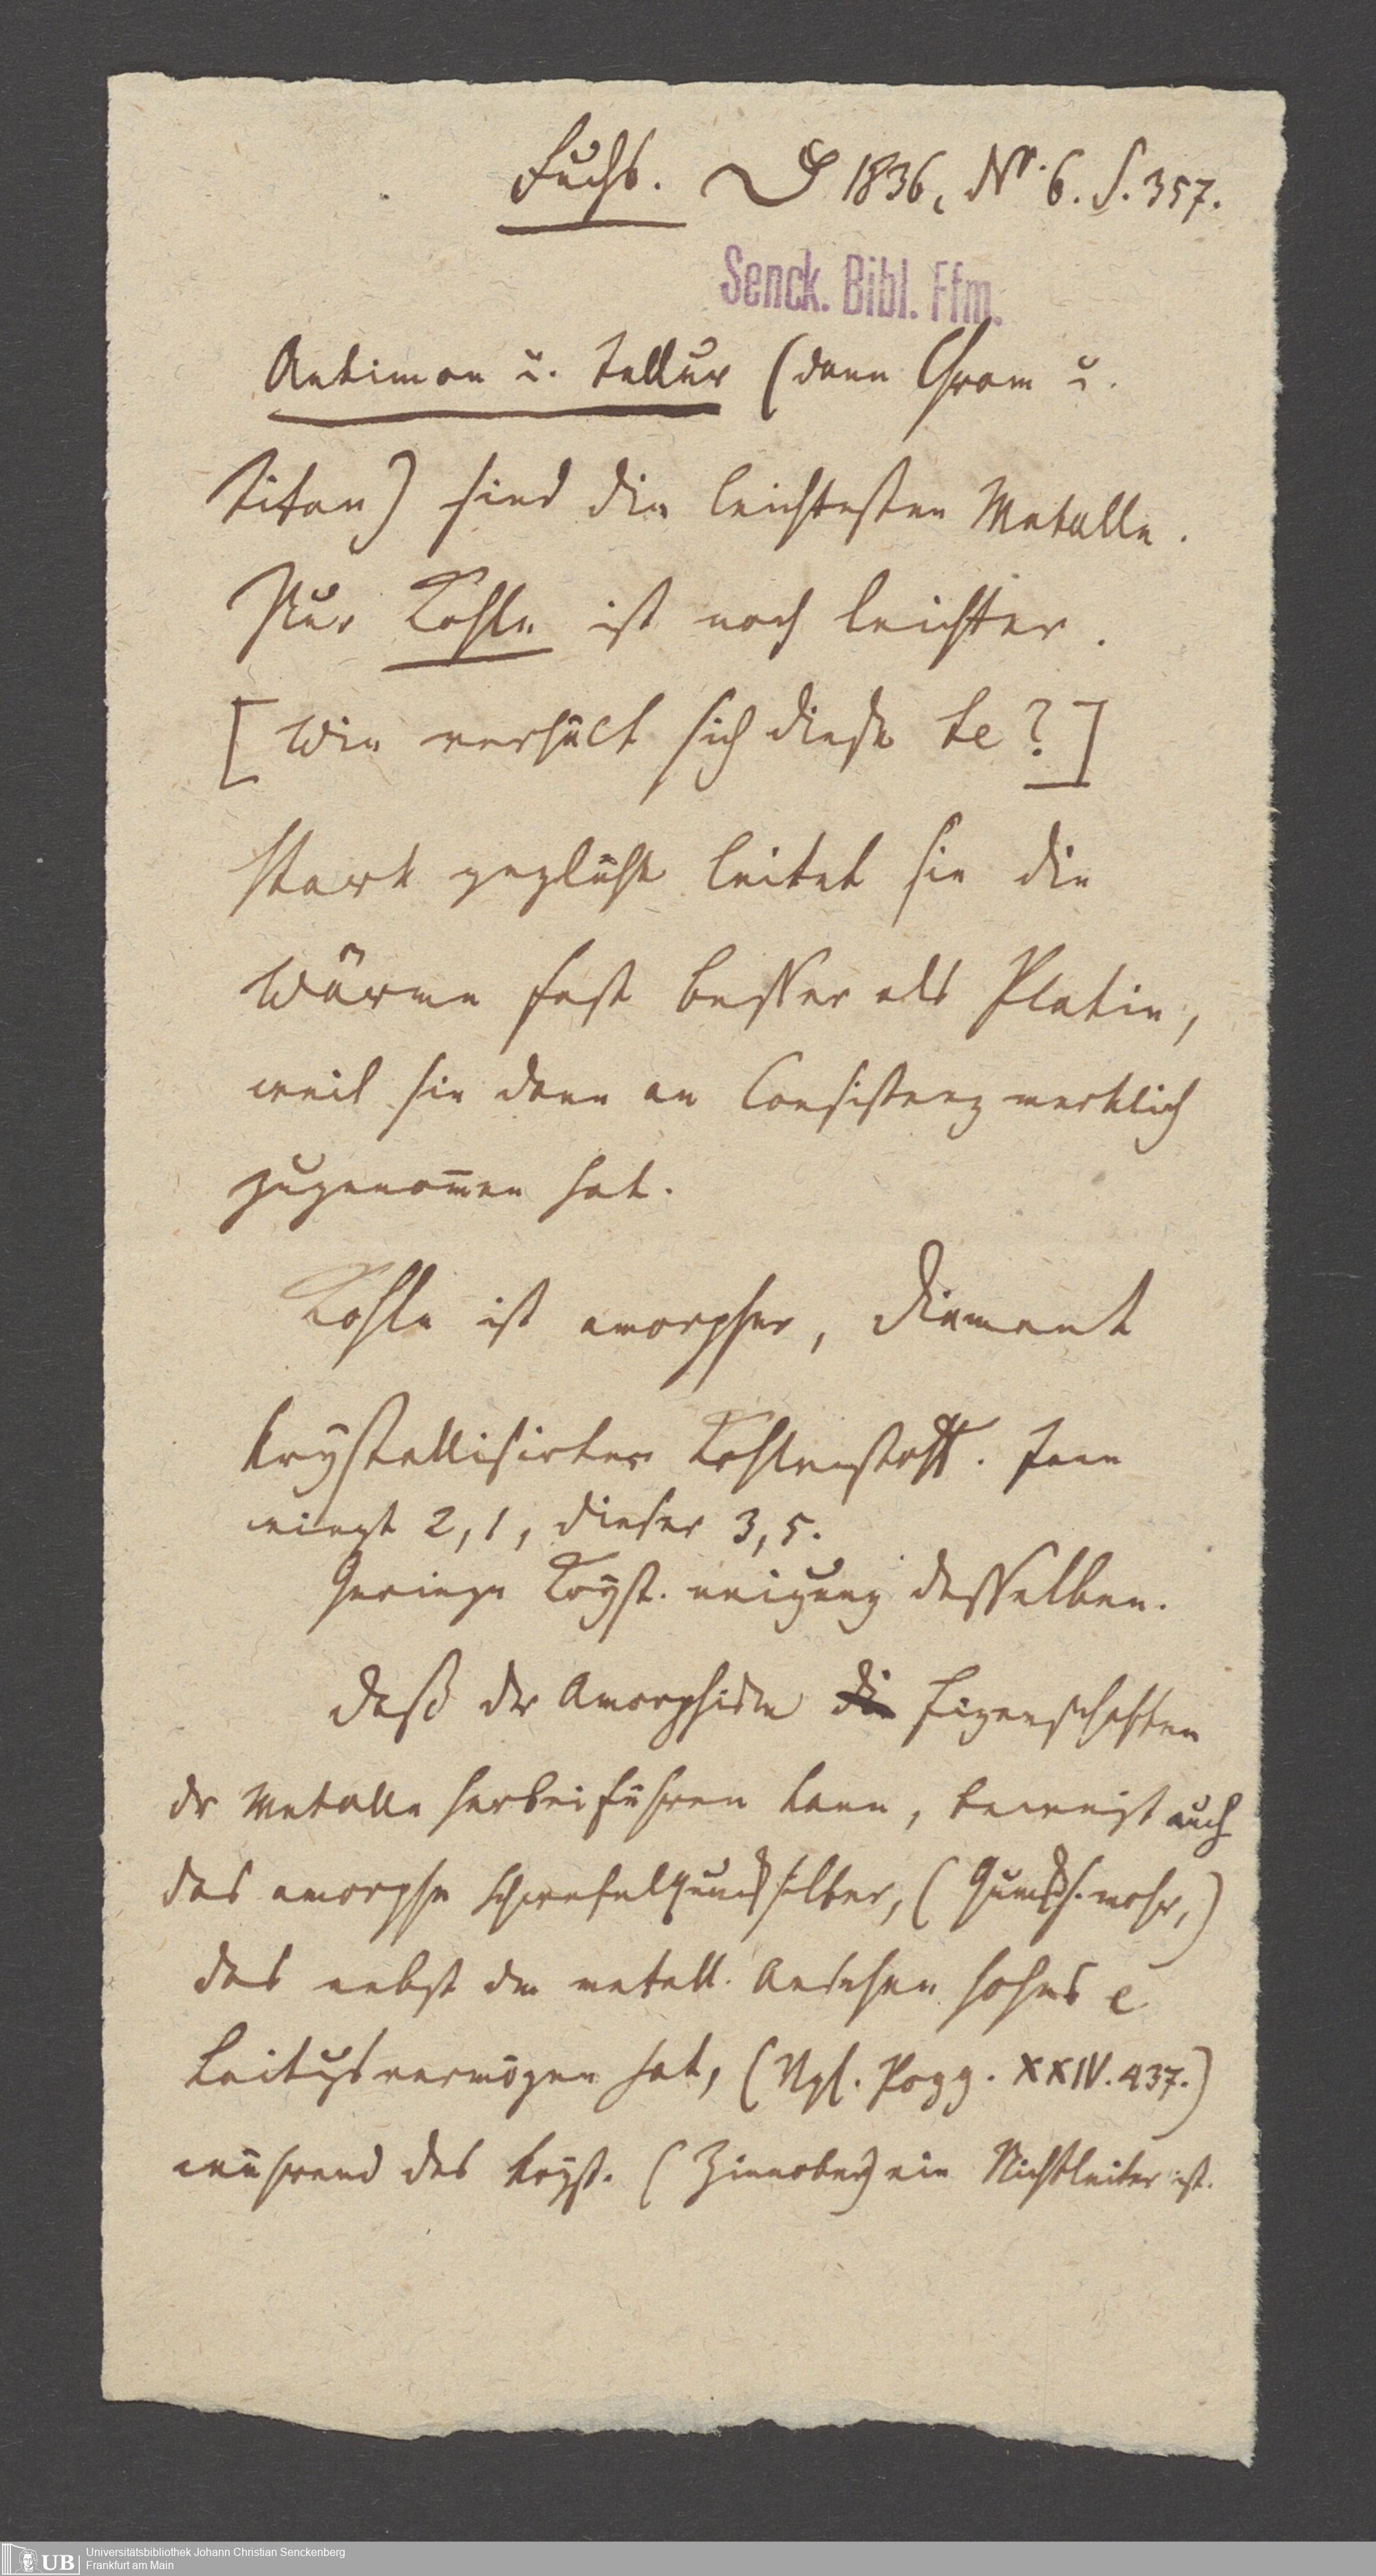 Fuchs. 1836, Nr. 6. S. 357.
Senck. Bibl. Ffm.
Antimon u. Tellur (dann Chrom u.
Titan) sind die leichtesten Metalle.
Nur Kohle ist noch leichter.
[Wie verhält sich diese te?]
Stark geglüht leitet sie die
Wärme fast besser als Platin,
weil sie dann an Consistenz merklich
zugenom̄en hat.
Kohle ist amorpher, Diamant
krystallisirter Kohlenstoff. Jene
wiegt 2,1, dieser 3,5.
Geringe Kryst. neigung desselben.
Daß der Amorphism die Eigenschaften
der Metalle herbeiführen kann, beweist auch
das amorphe Schwefelquecksilber, (Quecks. mohr,)
das nebst dem metall. Ansehen hohes e
Leitgsvermögen hat, (Vgl. Pogg. XXIV. 437.)
während das kryst. (Zinnober) ein Nichtleiter ist.
UB
Universitätsbibliothek Johann Christian Senckenberg
Frankfurt am Main